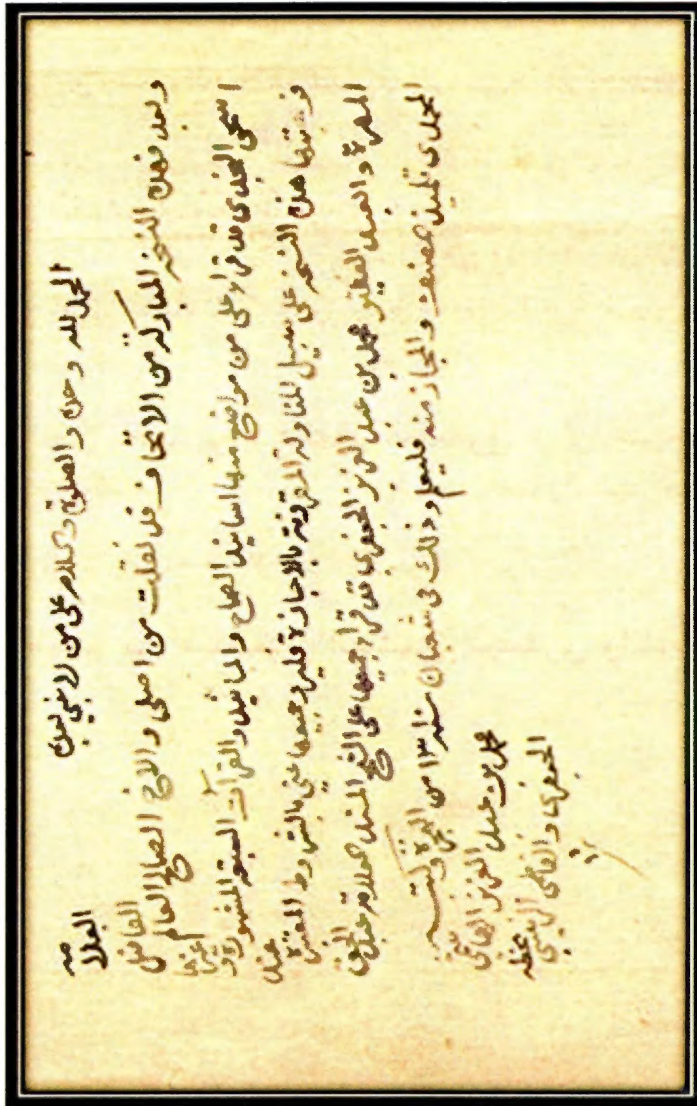 الحمد لله وحده والصلوة والسلام على من لا نبي بعده
وبعد فهذه النسخة المباركة من الاتحاف قد نقلت من اصلي والاخ الصالح العالم الفاضل العلامة
اسمى المجدى قد قراء على من مواضع منها اسانيد الصحاح والمسانيد والقرآت السبعة المشهورة وغيرها
هذه النسخة على سبيل المناولة المقرونة بالاجازة فليرو جميعها عني بالشروط المعتبرة عند
المهرة والعبد الفقير محمد بن عبد العزيز الجعفرى قد قراء جميعها على الشيخ المسند عبد الحق
المحمدى تلميذ مصنفه والمجاز منه فليعلم وذلك في شعبان سنة من الهجرة وكتبه
محمد بن عبد العزيز الهاشمي
الجعفرى القاضى الزينبي بخطه